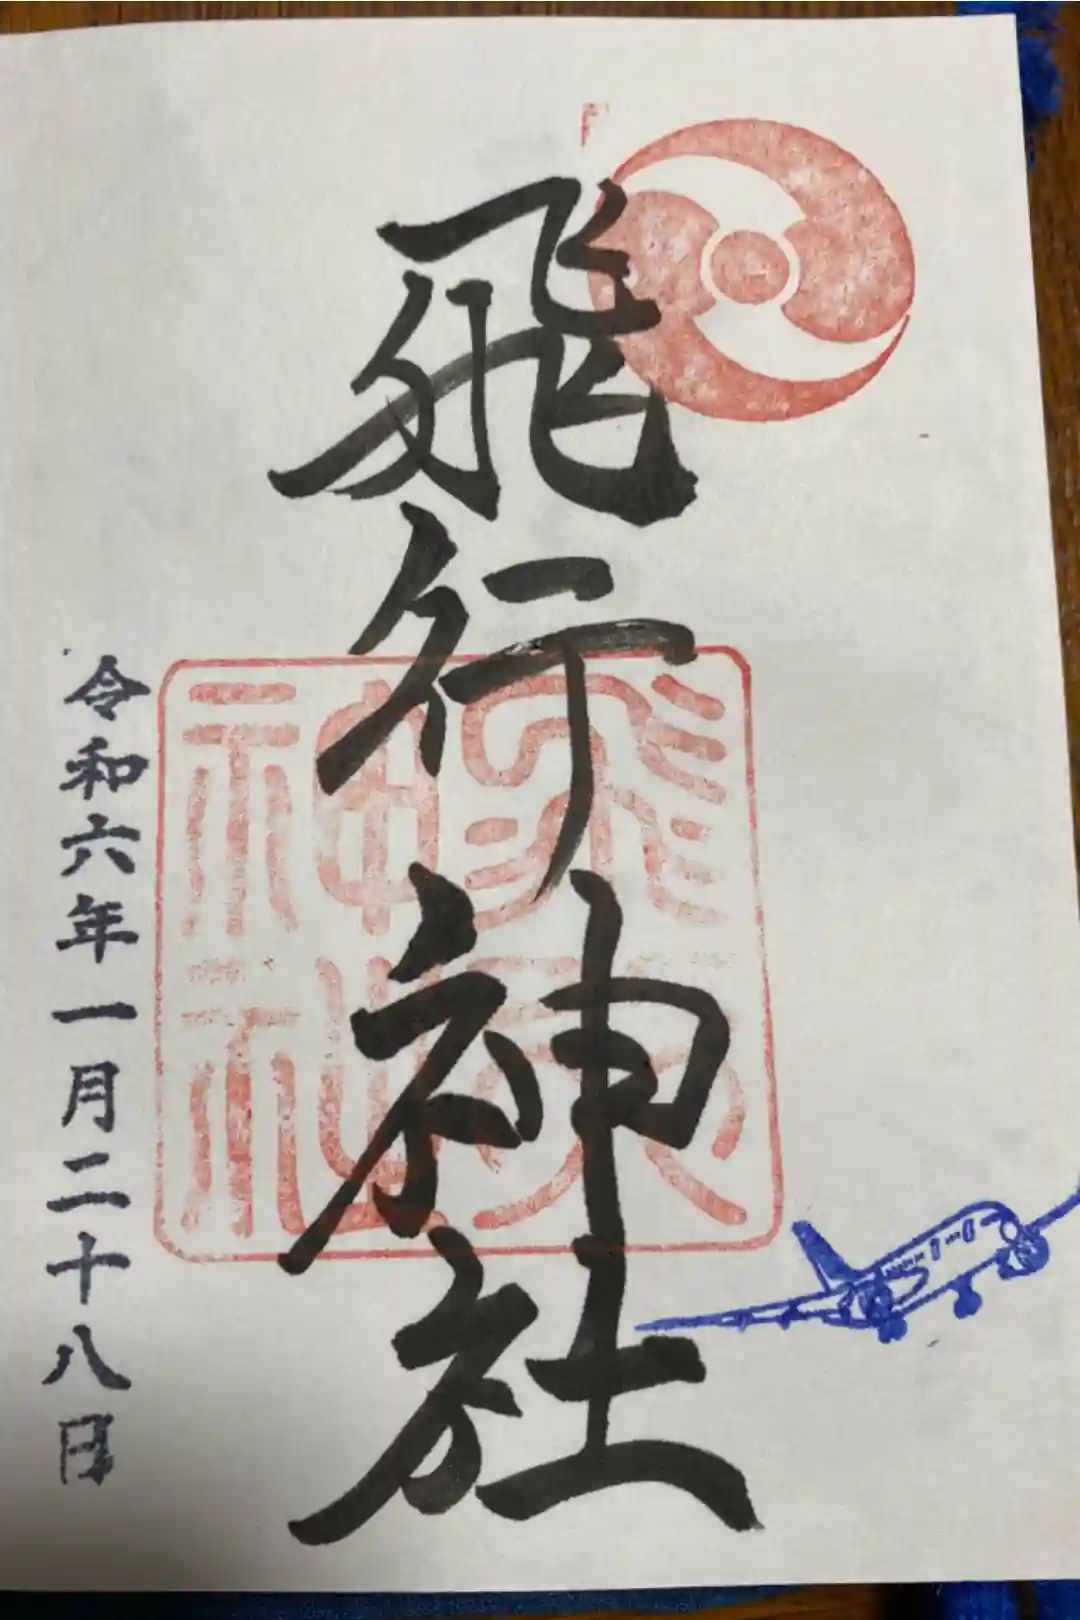 飛行神社
飛行神社
令和六年一月二十八日